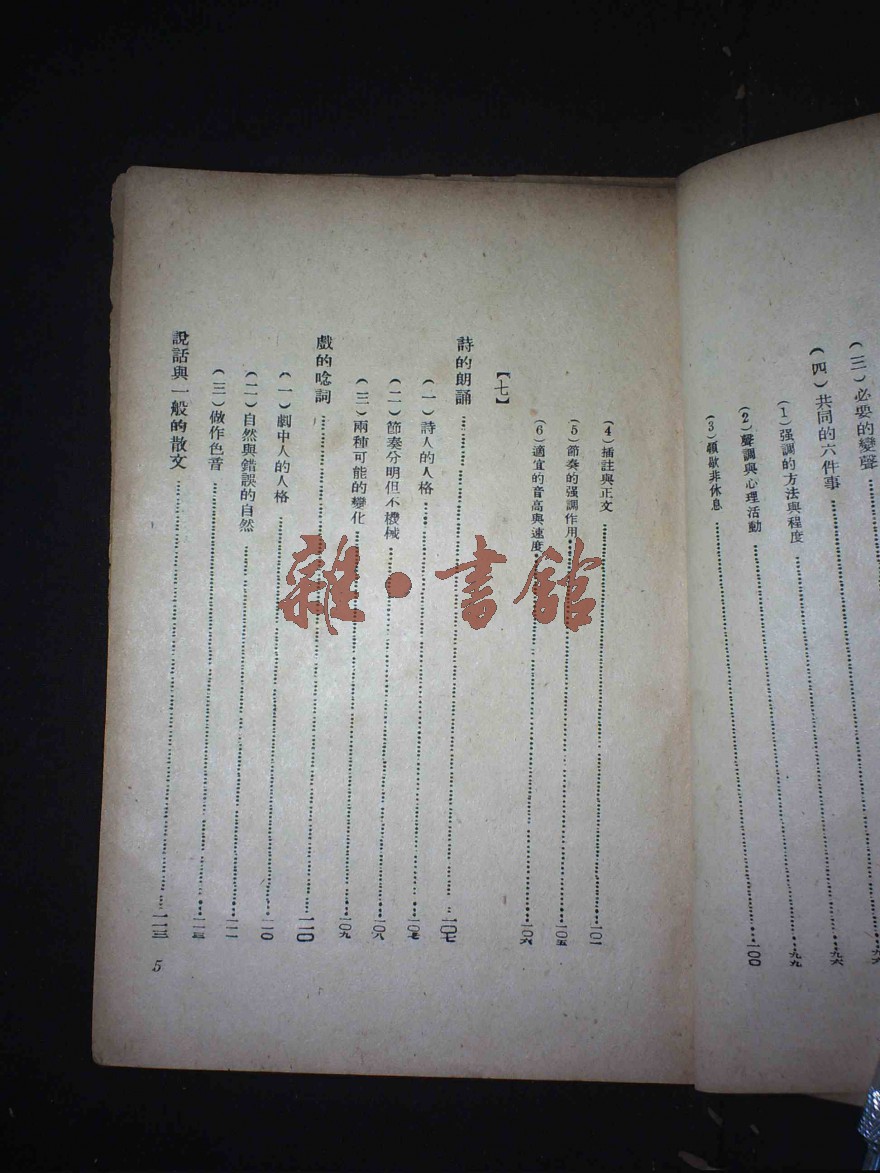 (三)必要的變聲……九六
(四)共同的六件事……九六
(1)强調的方法與程度……九九
(2)聲調與心理活動……一〇〇
(3)頓歇非休息
(4)插註與正文……一〇一
(5)節奏的强調作用……一〇五
(6)適宜的音高與速度……一〇六
【七】
詩的朗誦……一〇七
(一)詩人的人格……一〇七
(二)節奏分明但不機械……一〇八
(三)兩種可能的變化……一〇九
戲的唸詞……一一〇
(一)劇中人的人格……一一〇
(二)自然與錯誤的自然……一一一
(三)做作色音……一一三
說話與一般的散文……一一三
5
雜·書館